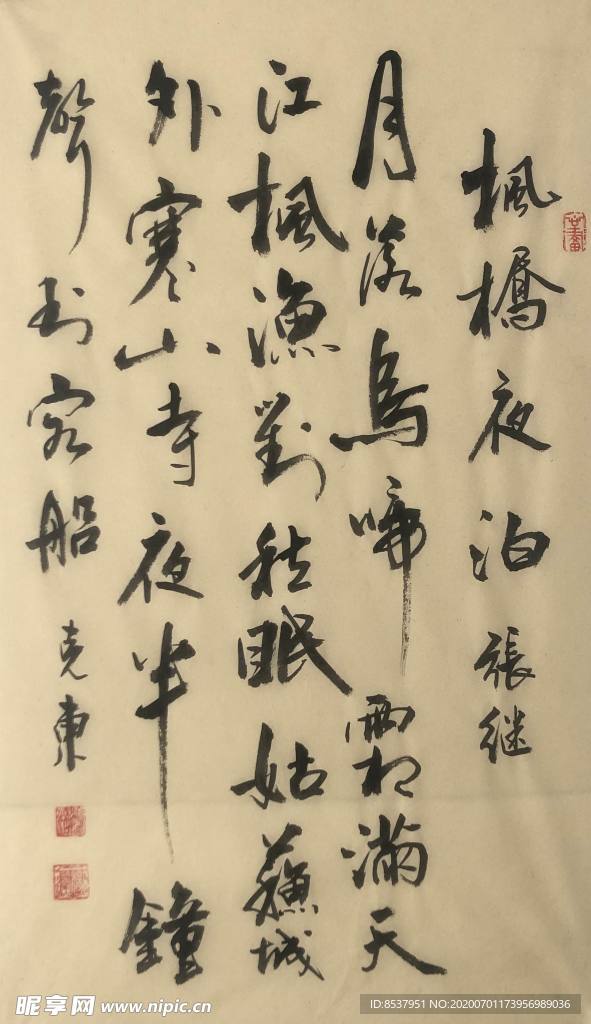 楓橋夜泊 張继
月落烏啼霜滿天
江楓漁對愁眠姑蘇城
外寒山寺夜半鐘
聲到客船
克東
昵享网 www.nipic.cn
ID:8537951 NO:20200701173956989036